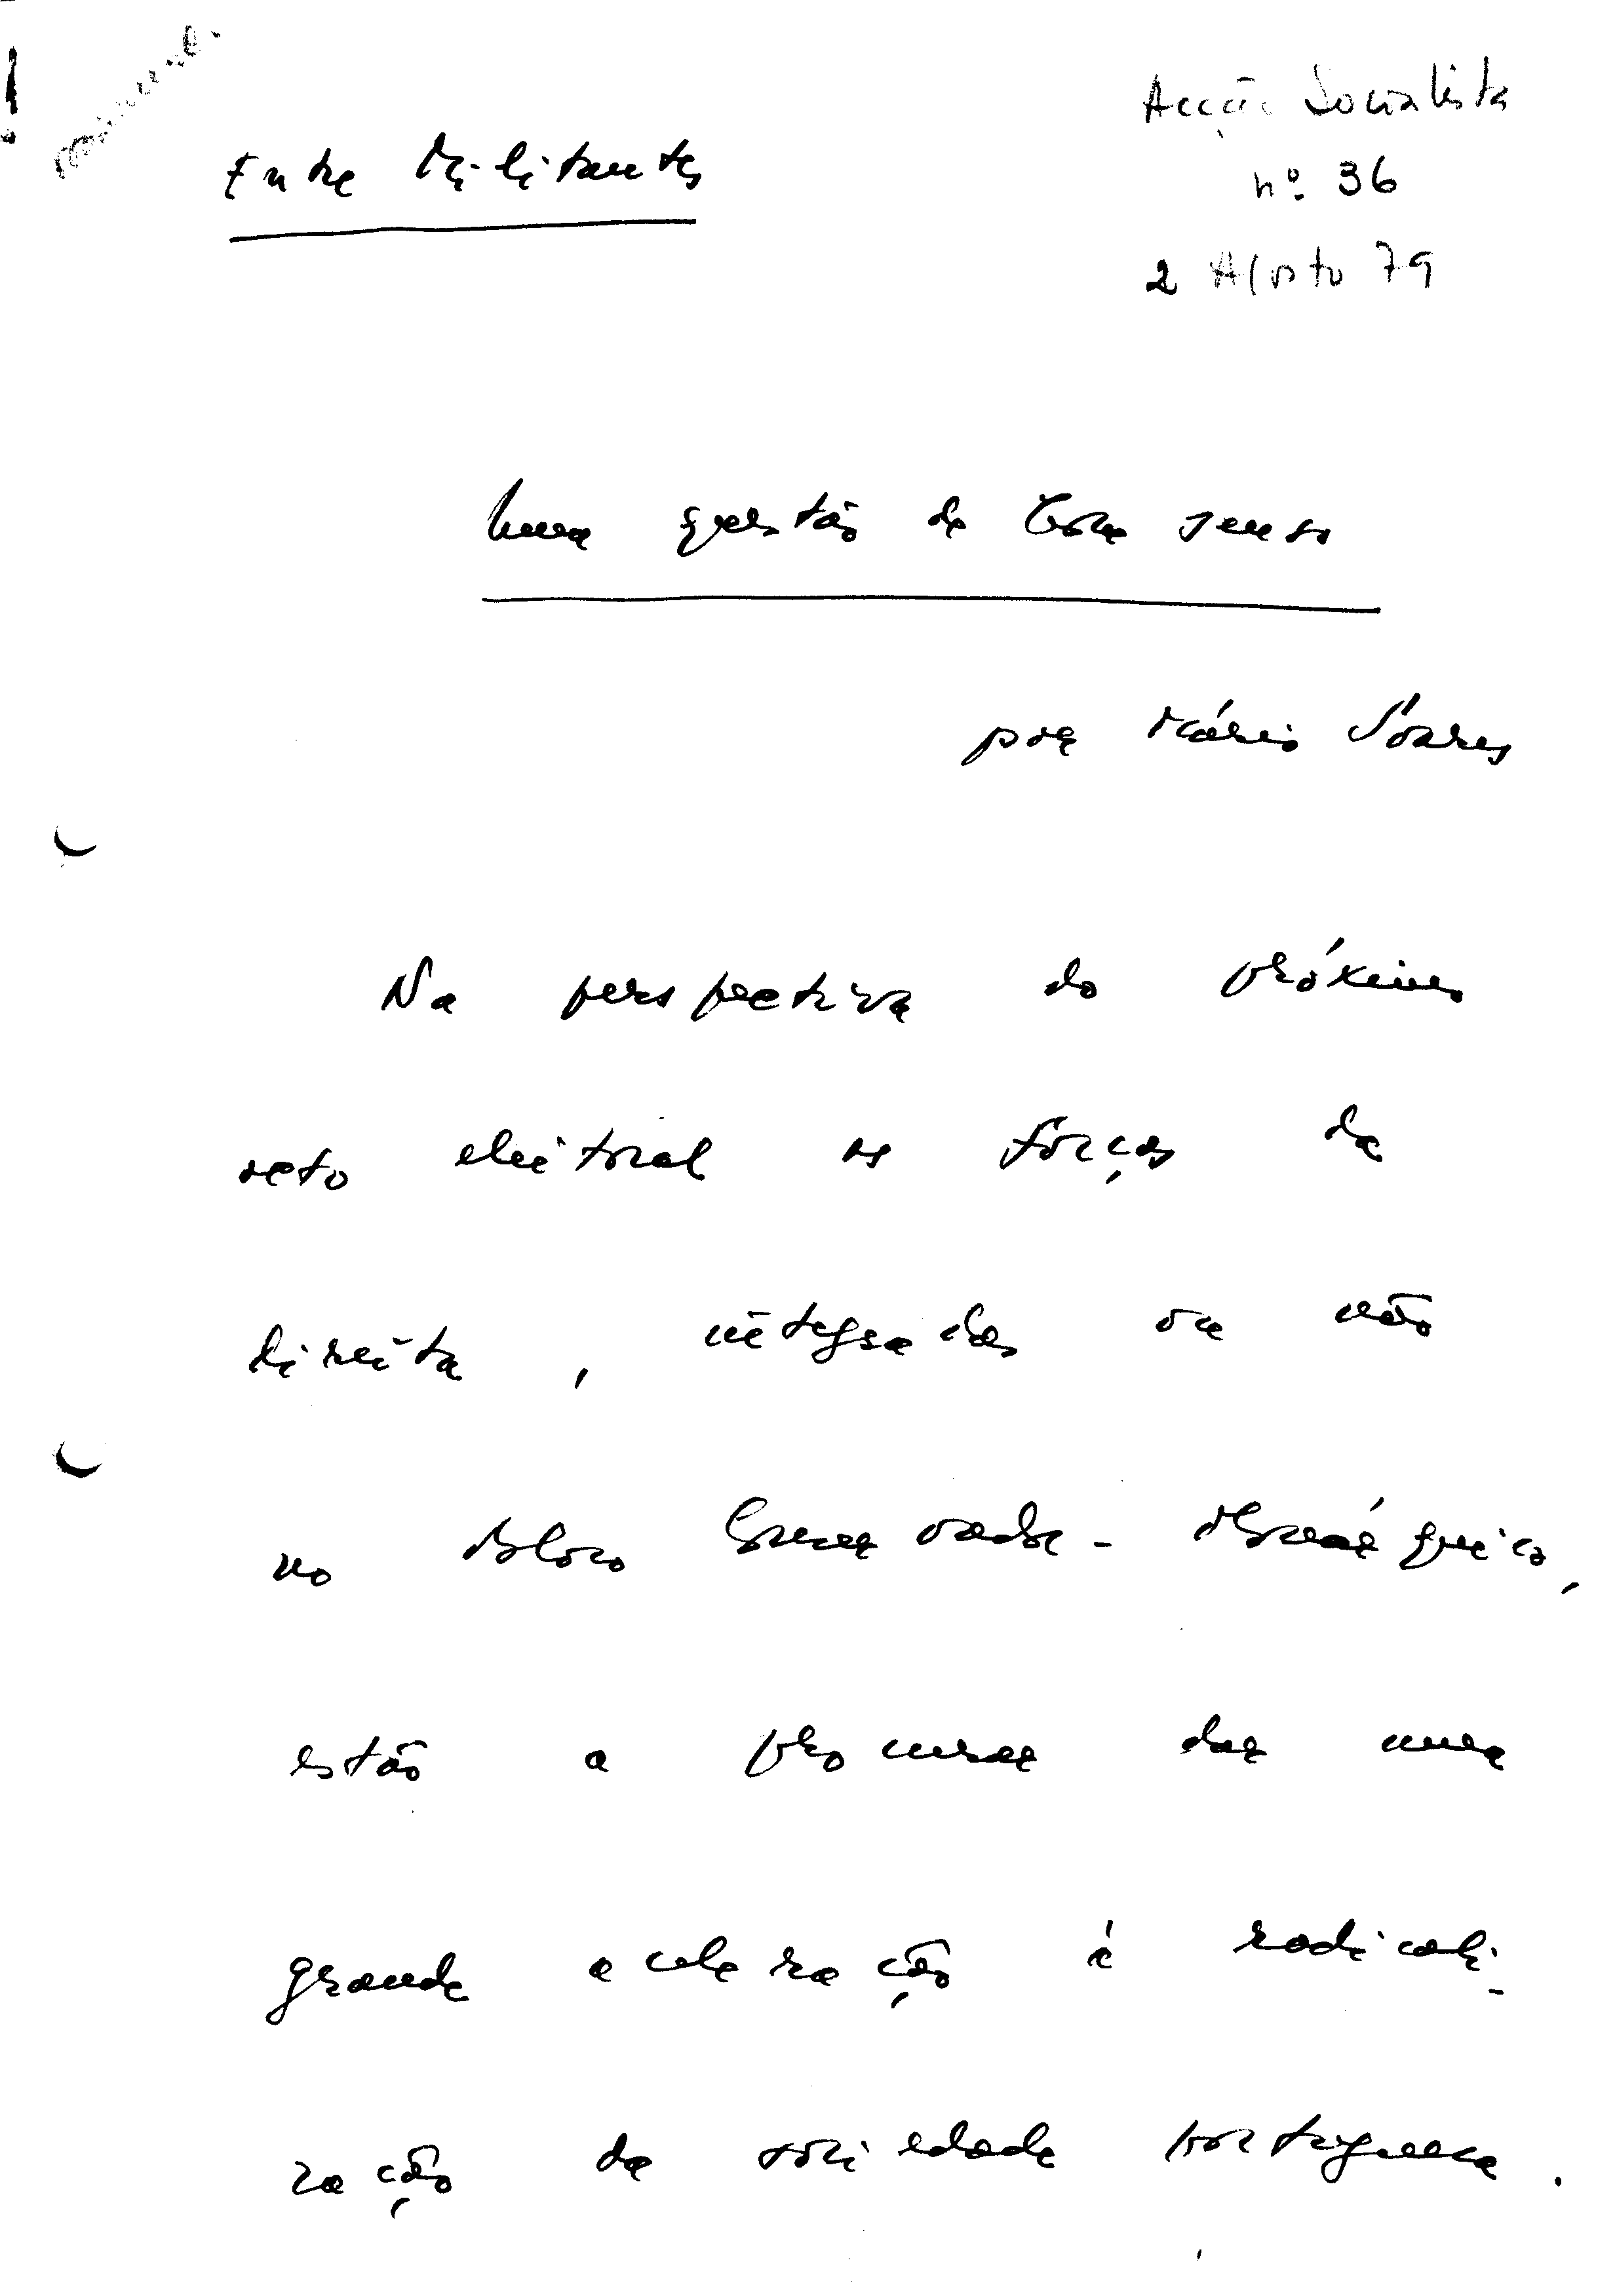 Acção Socialista
Entre Militantes
nº 36
2 Agosto 79
Uma questão de bom senso
por Mário Soares
Na perspectiva do próximo
acto eleitoral as forças da
direita, integradas ou não
no Bloco Conservador-Monárquico,
estão a procurar dar uma
grande aceleração à radicali-
zação da sociedade portuguesa.